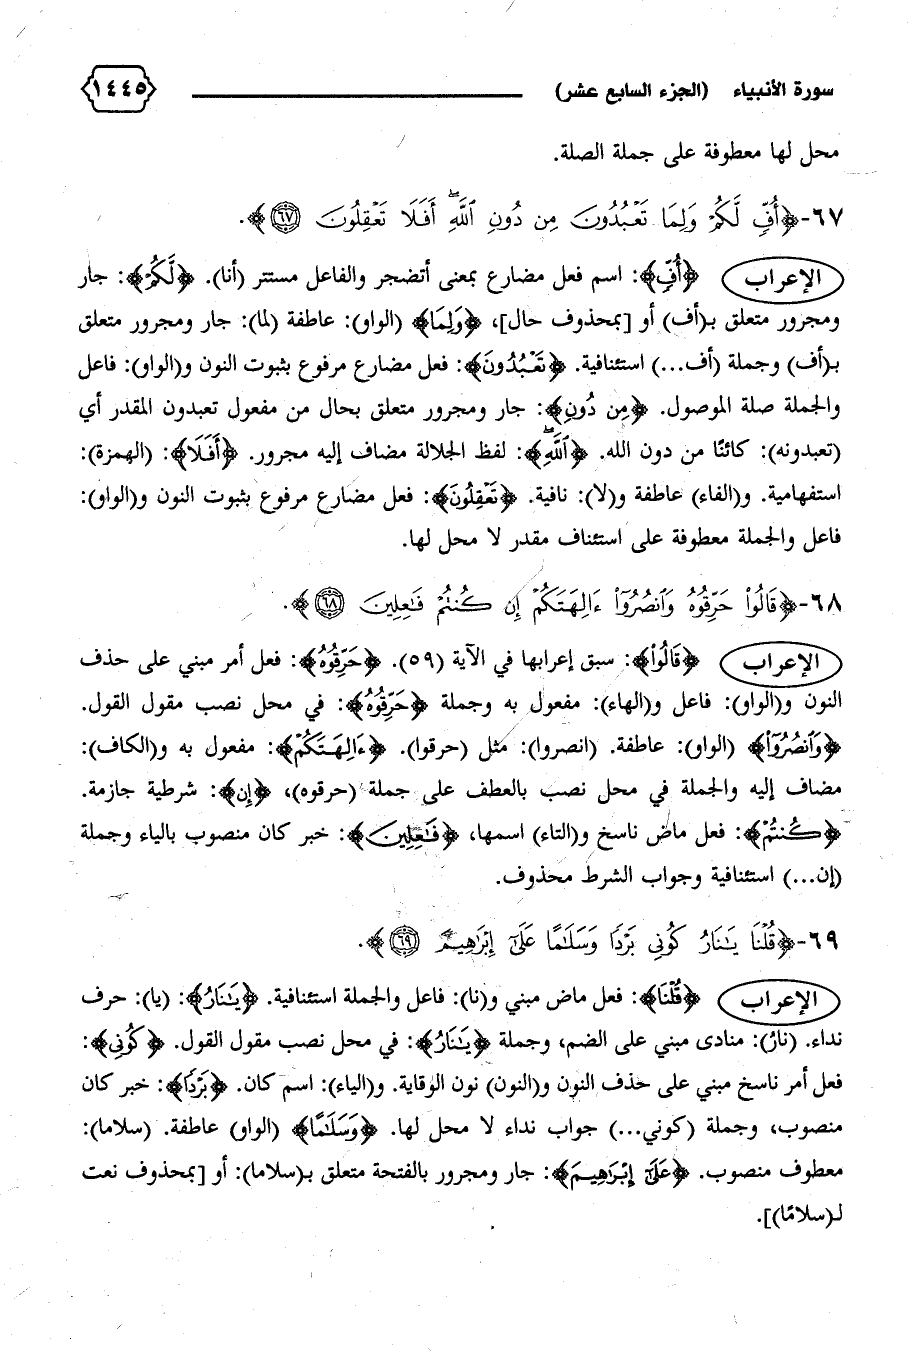 سورة الأنبياء (الجزء السابع عشر) ١٤٤٥
محل لها معطوفة على جملة الصلة.
٦٧-﴿أُفٍّ لَّكُمْ وَلِمَا تَعْبُدُونَ مِن دُونِ ٱللَّهِۖ أَفَلَا تَعْقِلُونَ ٦٧﴾.
الإعراب ﴿أُفٍّ﴾: اسم فعل مضارع بمعنى أتضجر والفاعل مستتر (أنا). ﴿لَّكُمْ﴾: جار
ومجرور متعلق بـ(أف) أو [بمحذوف حال]، ﴿وَلِمَا﴾ (الواو): عاطفة (لما): جار ومجرور متعلق
بـ(أف) وجملة (أف...) استئنافية. ﴿تَعْبُدُونَ﴾: فعل مضارع مرفوع بثبوت النون و(الواو): فاعل
والجملة صلة الموصول. ﴿مِن دُونِ﴾: جار ومجرور متعلق بحال من مفعول تعبدون المقدر أي
(تعبدونه): كائنًا من دون الله. ﴿ٱللَّهِۖ﴾: لفظ الجلالة مضاف إليه مجرور. ﴿أَفَلَا﴾: (الهمزة):
استفهامية. و(الفاء) عاطفة و(لا): نافية. ﴿تَعْقِلُونَ﴾: فعل مضارع مرفوع بثبوت النون و(الواو):
فاعل والجملة معطوفة على استئناف مقدر لا محل لها.
٦٨-﴿قَالُوا۟ حَرِّقُوهُ وَٱنصُرُوٓا۟ ءَالِهَتَكُمْ إِن كُنتُمْ فَٰعِلِينَ ٦٨﴾.
الإعراب ﴿قَالُوا۟﴾: سبق إعرابها في الآية (٥٩). ﴿حَرِّقُوهُ﴾: فعل أمر مبني على حذف
النون و(الواو): فاعل و(الهاء): مفعول به وجملة ﴿حَرِّقُوهُ﴾: في محل نصب مقول القول.
﴿وَٱنصُرُوٓا۟﴾ (الواو): عاطفة. (انصروا): مثل (حرقوا). ﴿ءَالِهَتَكُمْ﴾: مفعول به و(الكاف):
مضاف إليه والجملة في محل نصب بالعطف على جملة (حرقوه)، ﴿إِن﴾: شرطية جازمة.
﴿كُنتُمْ﴾: فعل ماض ناسخ و(التاء) اسمها، ﴿فَٰعِلِينَ﴾: خبر كان منصوب بالياء وجملة
(إن...) استئنافية وجواب الشرط محذوف.
٦٩-﴿قُلْنَا يَٰنَارُ كُونِى بَرْدًا وَسَلَٰمًا عَلَىٰٓ إِبْرَٰهِيمَ ٦٩﴾.
الإعراب ﴿قُلْنَا﴾: فعل ماض مبني و(نا): فاعل والجملة استئنافية. ﴿يَٰنَارُ﴾: (يا): حرف
نداء. (نارُ): منادى مبني على الضم، وجملة ﴿يَٰنَارُ﴾: في محل نصب مقول القول. ﴿كُونِى﴾:
فعل أمر ناسخ مبني على حذف النون و(النون) نون الوقاية. و(الياء): اسم كان. ﴿بَرْدًا﴾: خبر كان
منصوب، وجملة (كوني...) جواب نداء لا محل لها. ﴿وَسَلَٰمًا﴾ (الواو) عاطفة. (سلاما):
معطوف منصوب. ﴿عَلَىٰٓ إِبْرَٰهِيمَ﴾: جار ومجرور بالفتحة متعلق بـ(سلاما): أو [بمحذوف نعت
لـ(سلامًا)].